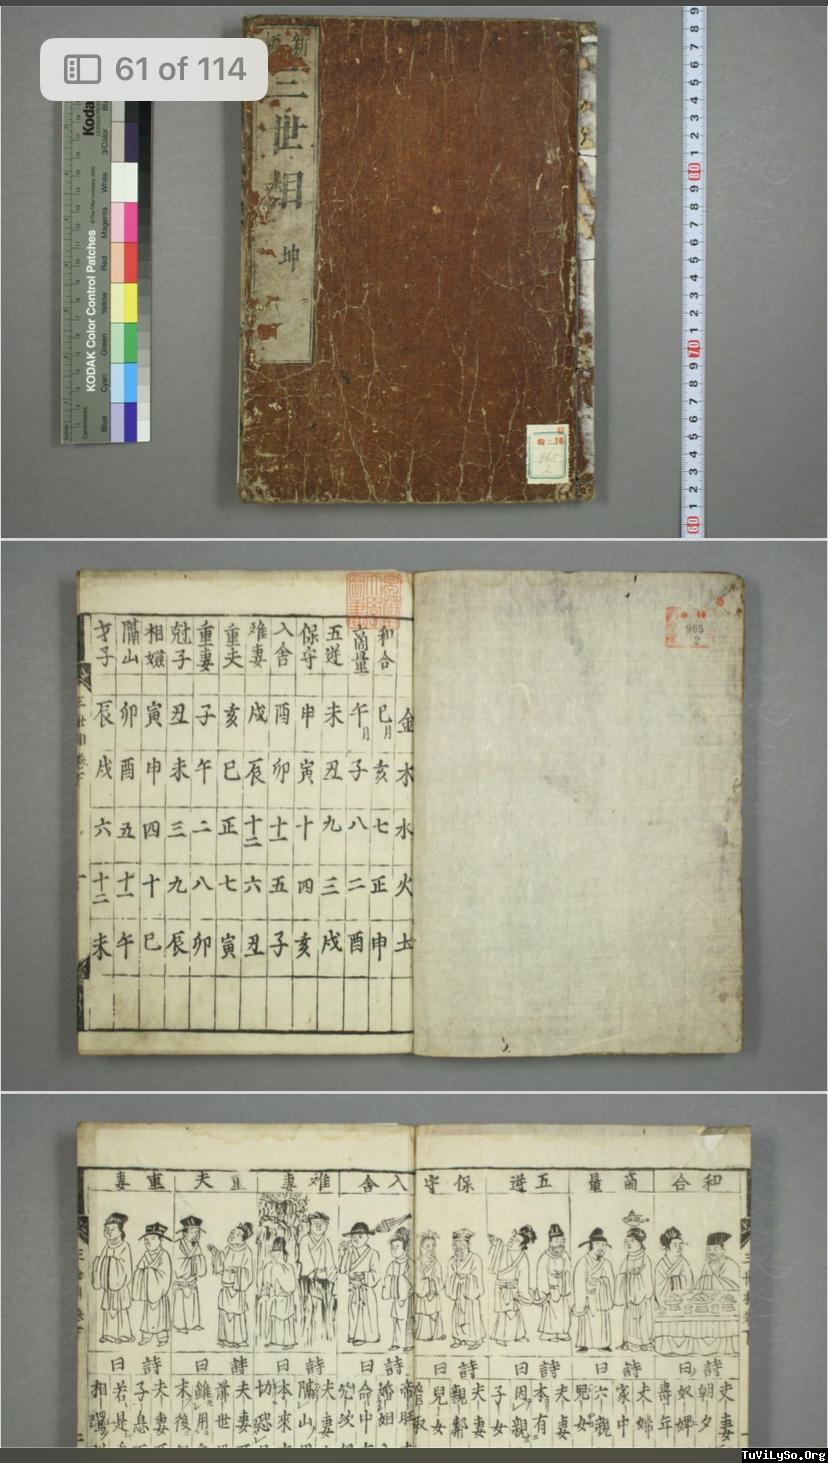 61 of 114
新
三世相
坤
Kodak
KODAK Color Control Patches
Blue
Cyan
Green
Yellow
Red
Magenta
White
3/Color
Black
Centimetres
965
2
965
2
金 木 水 火 土
和合 巳月 亥 七 正 申
商量 午月 子 八 二 酉
五逆 未 丑 九 三 戌
保守 申 寅 十 四 亥
入舎 酉 卯 十一 五 子
难妻 戌 辰 十二 六 丑
重夫 亥 巳 正 七 寅
重妻 子 午 二 八 卯
尅子 丑 未 三 九 辰
相嫌 寅 申 四 十 巳
隔山 卯 酉 五 十一 午
才子 辰 戌 六 十二 未
和合
商量
五逆
保守
入舎
难妻
重夫
重妻
詩曰
詩曰
詩曰
詩曰
詩曰
詩曰
詩曰
詩曰
夫妻
朝夕
奴婢
壽年
夫婦
家中
六親
兒女
夫妻
本有
因親
子女
夫妻
親鄰
兒女
婚姻
命中
夫妻
隔山
本來
夫妻
末後
夫妻
子息
若是
相
TuViLySo.Org